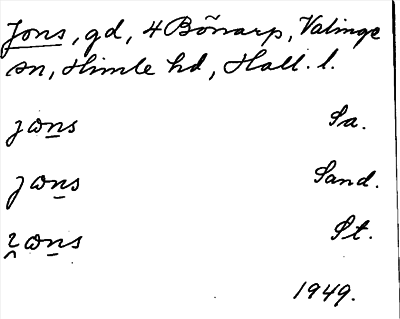 Jons, gd, 4 Bönarp, Valinge
sn, Himle hd, Hall. l.
jωns Sa.
jωns Sand.
ɿωns St.
1949.